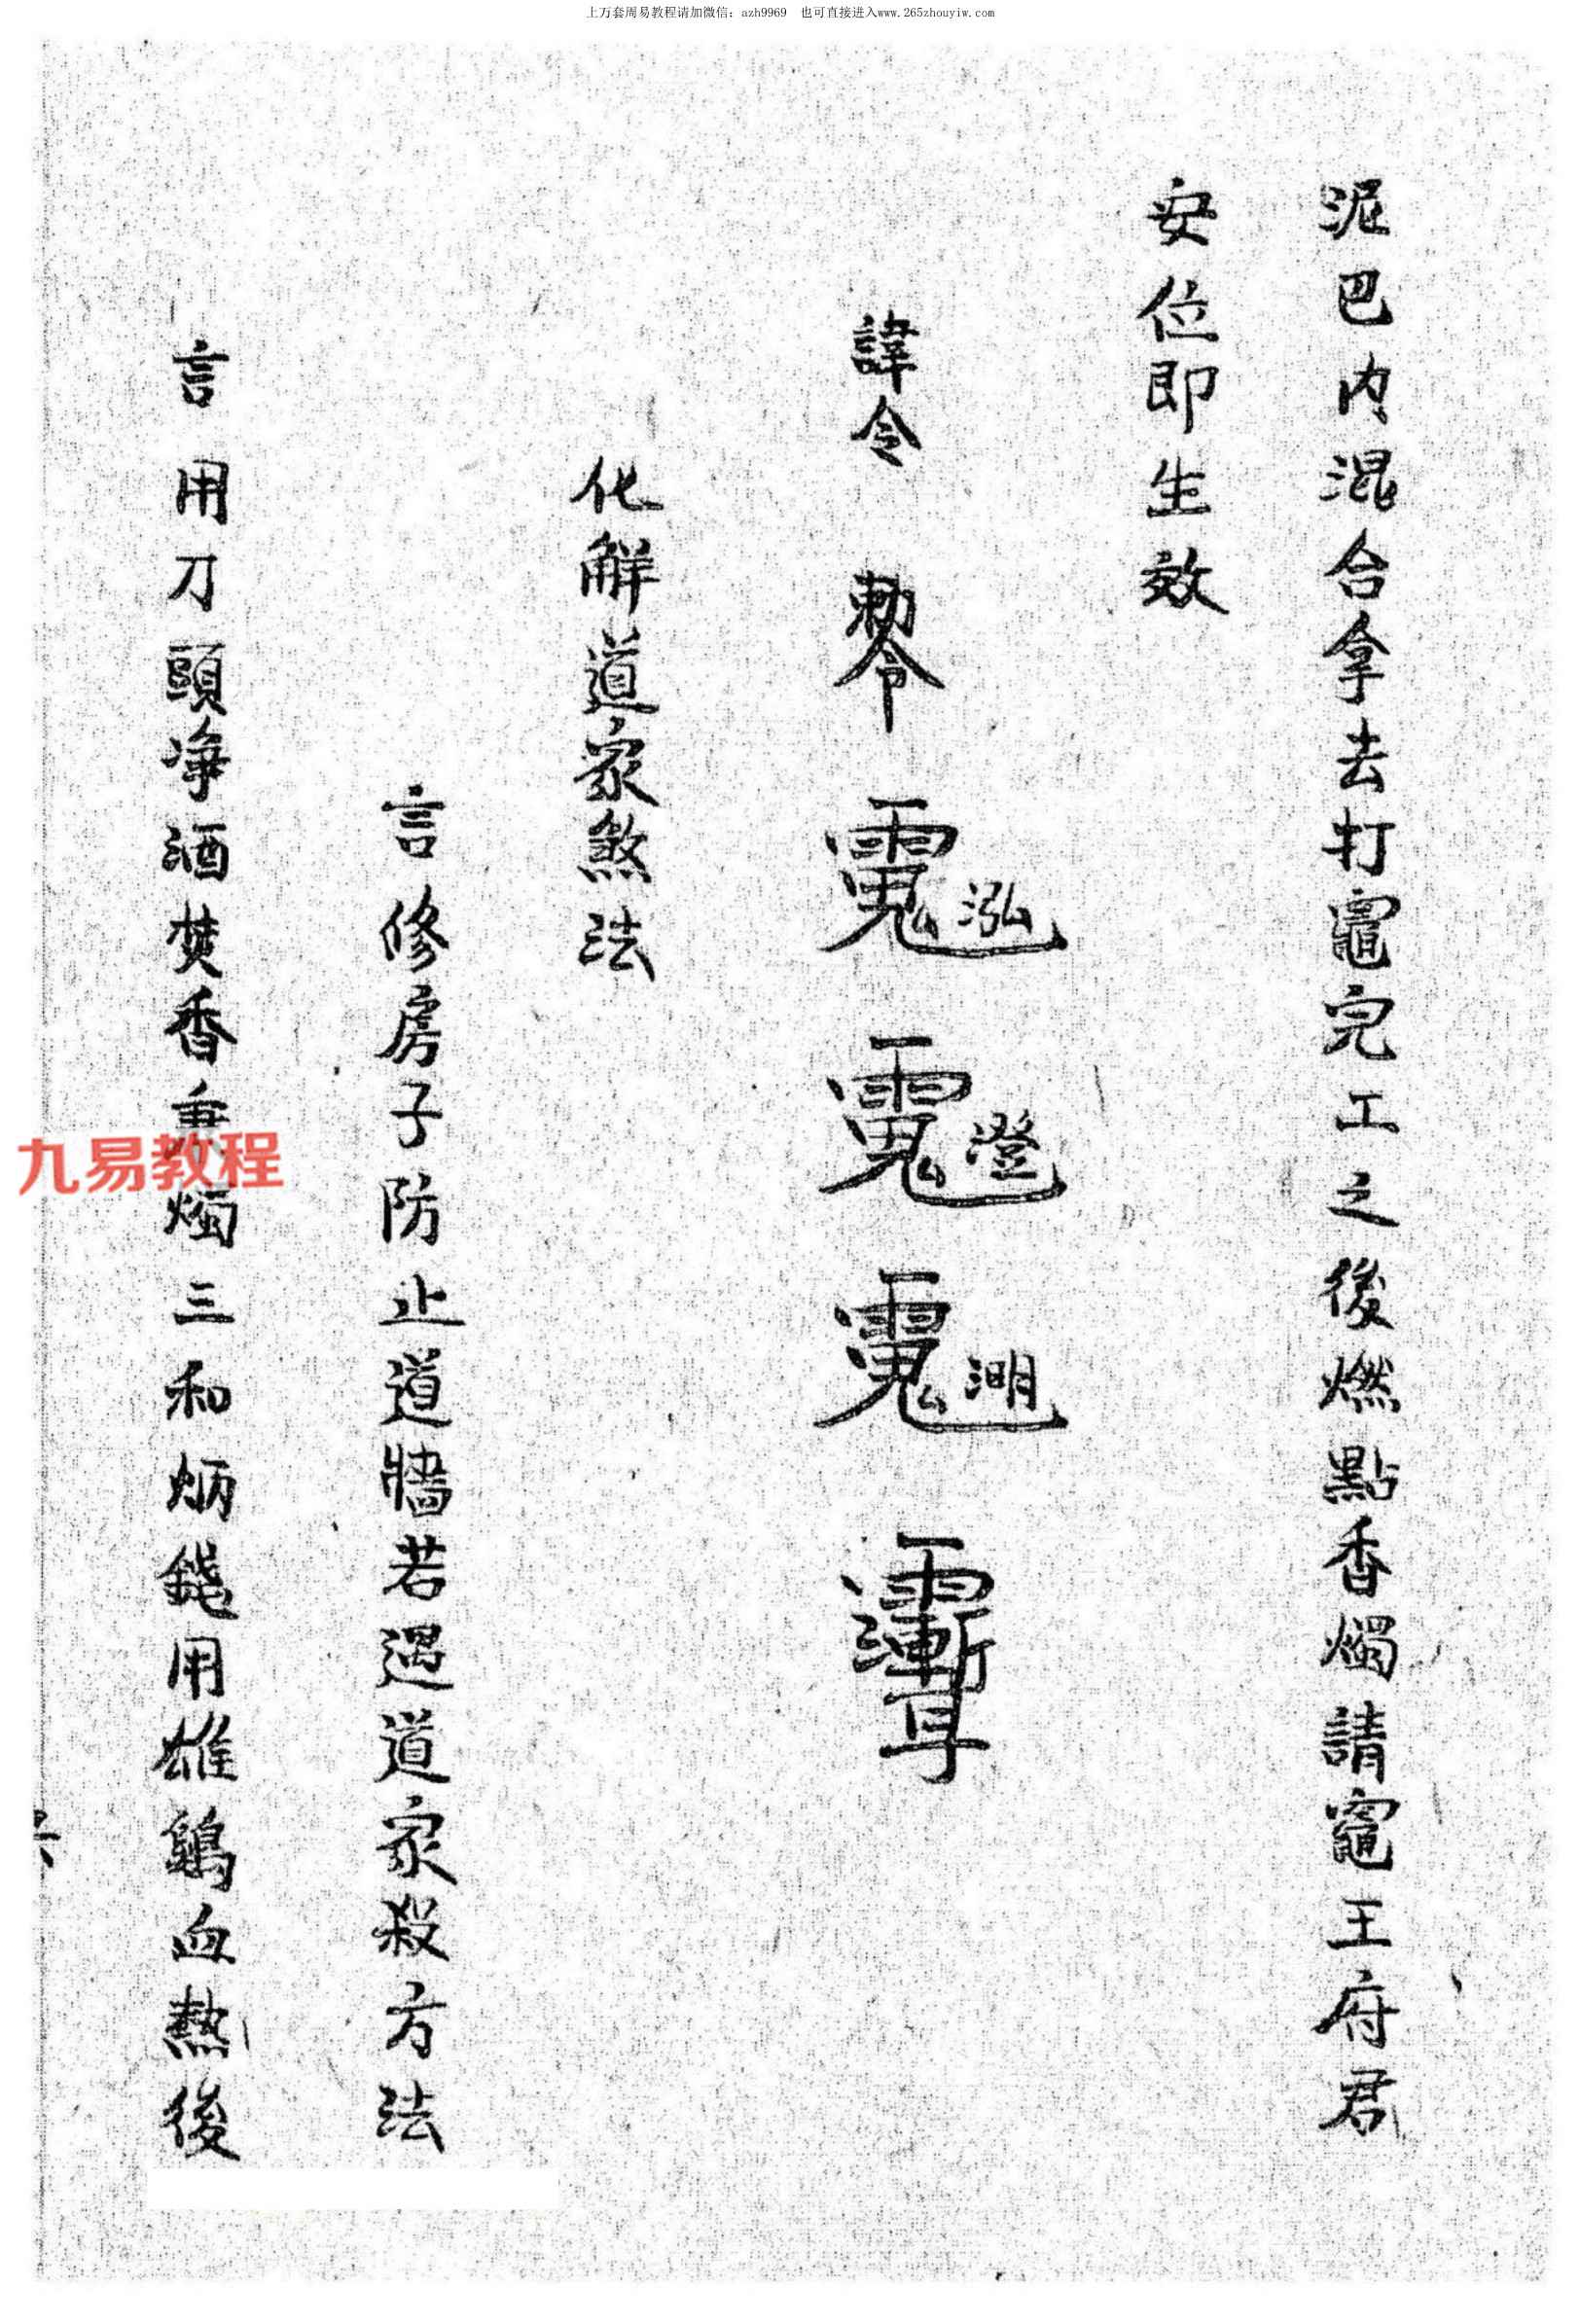 上万套周易教程请加微信：azh9969 也可直接进入www.265zhouyiw.com
泥巴内混合拿去打竈完工之後燃點香燭請竈王府君
安位即生效
諱令 泓 澄 明
化解道家煞法
言修房子防止道牆若遇道家殺方法
言用刀頭净酒焚香秉燭三和炳錢用雄鷄血熱後
九易教程